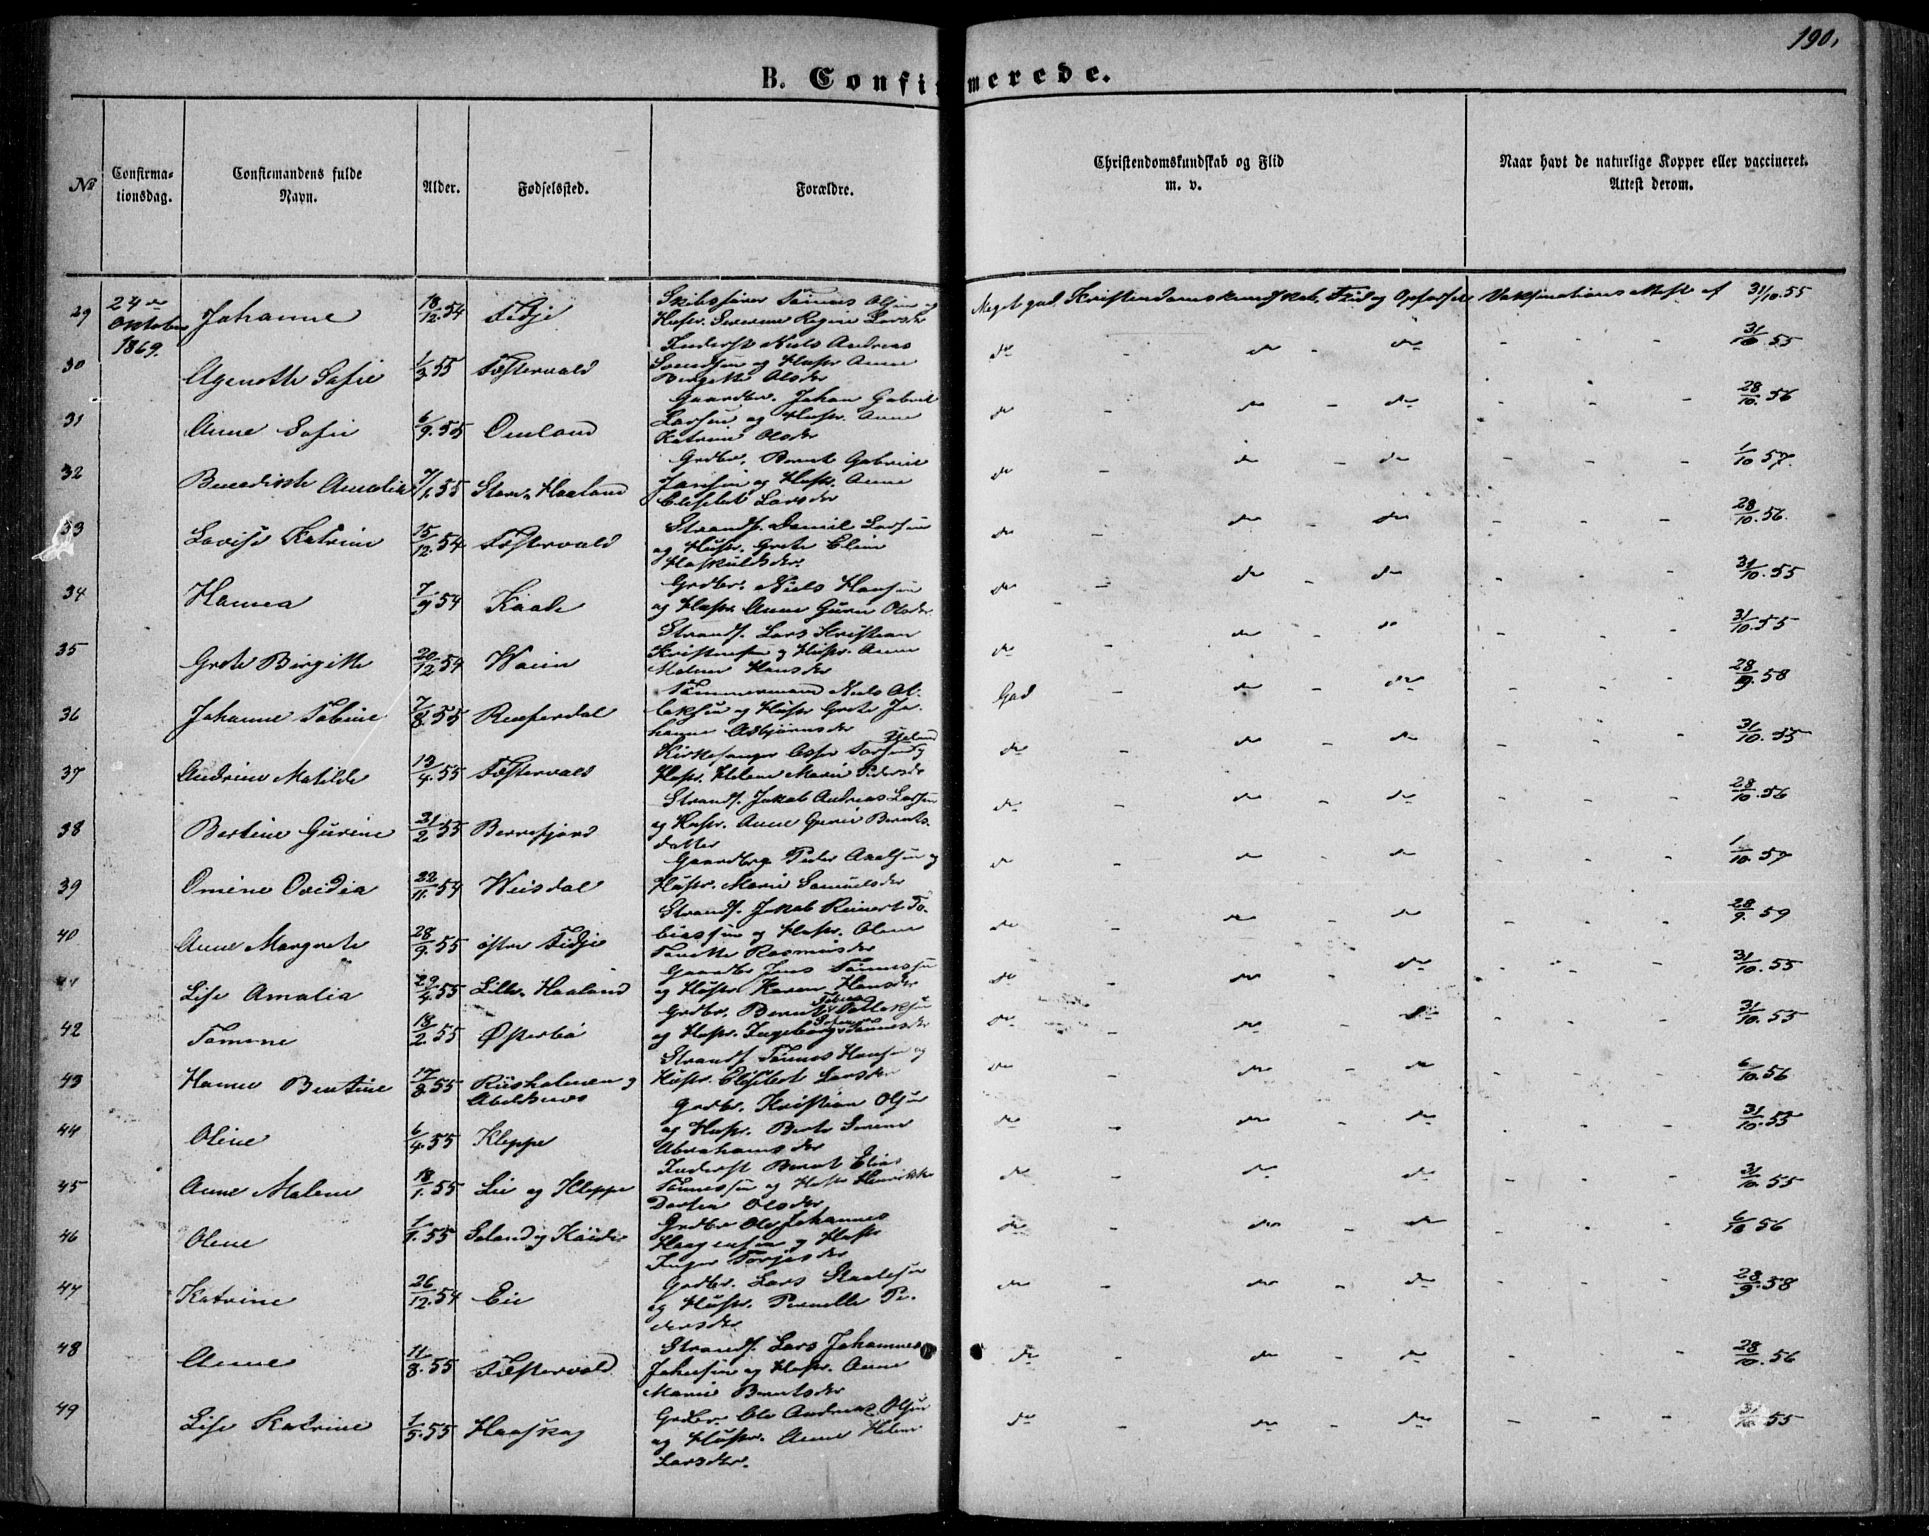 190,
B. Confirmerede.
No
Confirma-
tionsdag.
Confirmandens fulde
Navn.
Alder.
Fødselssted.
Forældre.
Christendomskundskab og Flid
m. v.
Naar havt de naturlige Kopper eller vaccineret.
Attest derom.
29 24de Oktober 1869. Johanne 18/12.54 Fidje
Skibsfører Tønnes Olsen og
Hustr. Severine Regine Larsdr
Meget god Kristendomskundskab, Flid og Opførsel Vaksinations Attest af 31/10.55
30 Agenethe Sofie 1/3.55 Festervold
Inderst Niels Andreas
Svendsen og Hustr. Anne
Birgitte Olsdr
do - do - do - - - 31/10.55
31 Anne Sofie 6/9.55 Omland
Gaardbr. Johan Gabriel
Larsen og Hustr. Anne
Katrine Olsdr
do - do - do - - - 28/10.56
32 Benedikte Amalia 7/1.55 Store Haaland
Grdbr. Bernt Gabriel
Jansen og Hustr. Anne
Elisabet Larsdr
do - do - do - - - 1/10 57.
33 Lovise Katrine 15/12.54 Festervold
Strands. Daniel Larsen
og Hustr. Grete Eline
Haskuldsdr.
do - do - do - - - 28/10.56.
34 Hanna 7/9.54 Kaade
Grdbr. Niels Hansen
og Hustr. Anne Gurine Olsdr
do - do - do - - - 31/10.55
35 Grete Birgitte 20/12.54
Strands. Lars Kristian
Kristensen og Hustr. Anne
Malene Hansdr
do - do - do - - - 31/10.55
36 Johanne Tobine 7/8.55 Reiferdal
Tømmermand Niels Al-
laksen og Hustr Grete Jo-
hanne Asbjørnsdr
God - do - do - - - 28/9.58
37 Andrine Matilde 13/4.55 Festervold
Kirkesanger Torsen Ueland og
Hustr. Helene Marie Pedersdr
do - do - do - - - 31/10.55
38 Bertine Gurine 21/2.55 Berrefjord
Strands. Jakob Andreas Larsen
og Hustr. Anne Gurine Bernts-
datter
do - do - do - - - 28/10.56
39 Omine Ovidia 22/11.54 Weisdal
Gaardbrg Peder Axelsen og
Hustr. Marie Samuelsdr
do - do - do - - - 1/10.57
40 Anne Margrete 28/9.55 østre Fidje
Strands. Jakob Reinert To-
biassen og Hustr. Olene
Tonette Rasmusdr
do - do - do - - - 28/9.59
41 Lise Amalia 29/4.55 Lille Haaland
Gaardbr Jens Tønnessen
og Hustr Karen Hansdr
do - do - do - - - 31/10.55
42 Tomine 18/2.55 Østerbø
Grdbr. Bernt Tollaksen
og Hustr. Ingeborg Tønnesdr
do - do - do - - - 31/10.55
43 Hanne Bertine 17/8.55 Riisholmen og
Abelsnes
Strands. Tønnes Hansen og
Hustr. Elisabet Larsdr
do - do - do - - - 6/10.56
44 Oline 6/4.55 Kleppe
Grdbr. Kristian Olsen
og Hustr. Berte Serine
Abrahamsdr
do - do - do - - - 31/10.55
45 Anne Malene 18/1.55 Lie og Kleppe
Inderst Bernt Elias
Tønnessen og Hustr Henrikke
Dortea Olsdr
do - do - do - - - 31/10.55
46 Olene 1/1.55
Grdbr Ole Johannes
Haagensen og Hustr
Inger Torjesdr
do - do - do - - - 6/10 56
47 Katrine 26/12.54 Eie
Grdbr. Lars Staalesen
og Hustr. Pernille Pe-
dersdr
do - do - do - - - 28/9.58
48 Anne 11/8.55 Festervold
Strands. Lars Johannes
Johnsen og Hustr. Anne
Marie Berntsdr
do - do - do - - - 28/10.56
49 Lise Katrine 1/5.55 Haaskag
Grdbr. Ole Andreas Olsen
og Hustr. Anne Helene
Larsdtr.
do - do - do - - - 31/10.55